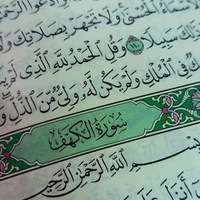 لأسماء الحسنى ولا تجهر بصلاتك و
ذلك سبيلا ١١٠ وقل الحمد لله الذي لم ي
ك في الملك ولم يكن له ولي من الذل و
سورة الكهف
بسم الله الرحمن الرحيم